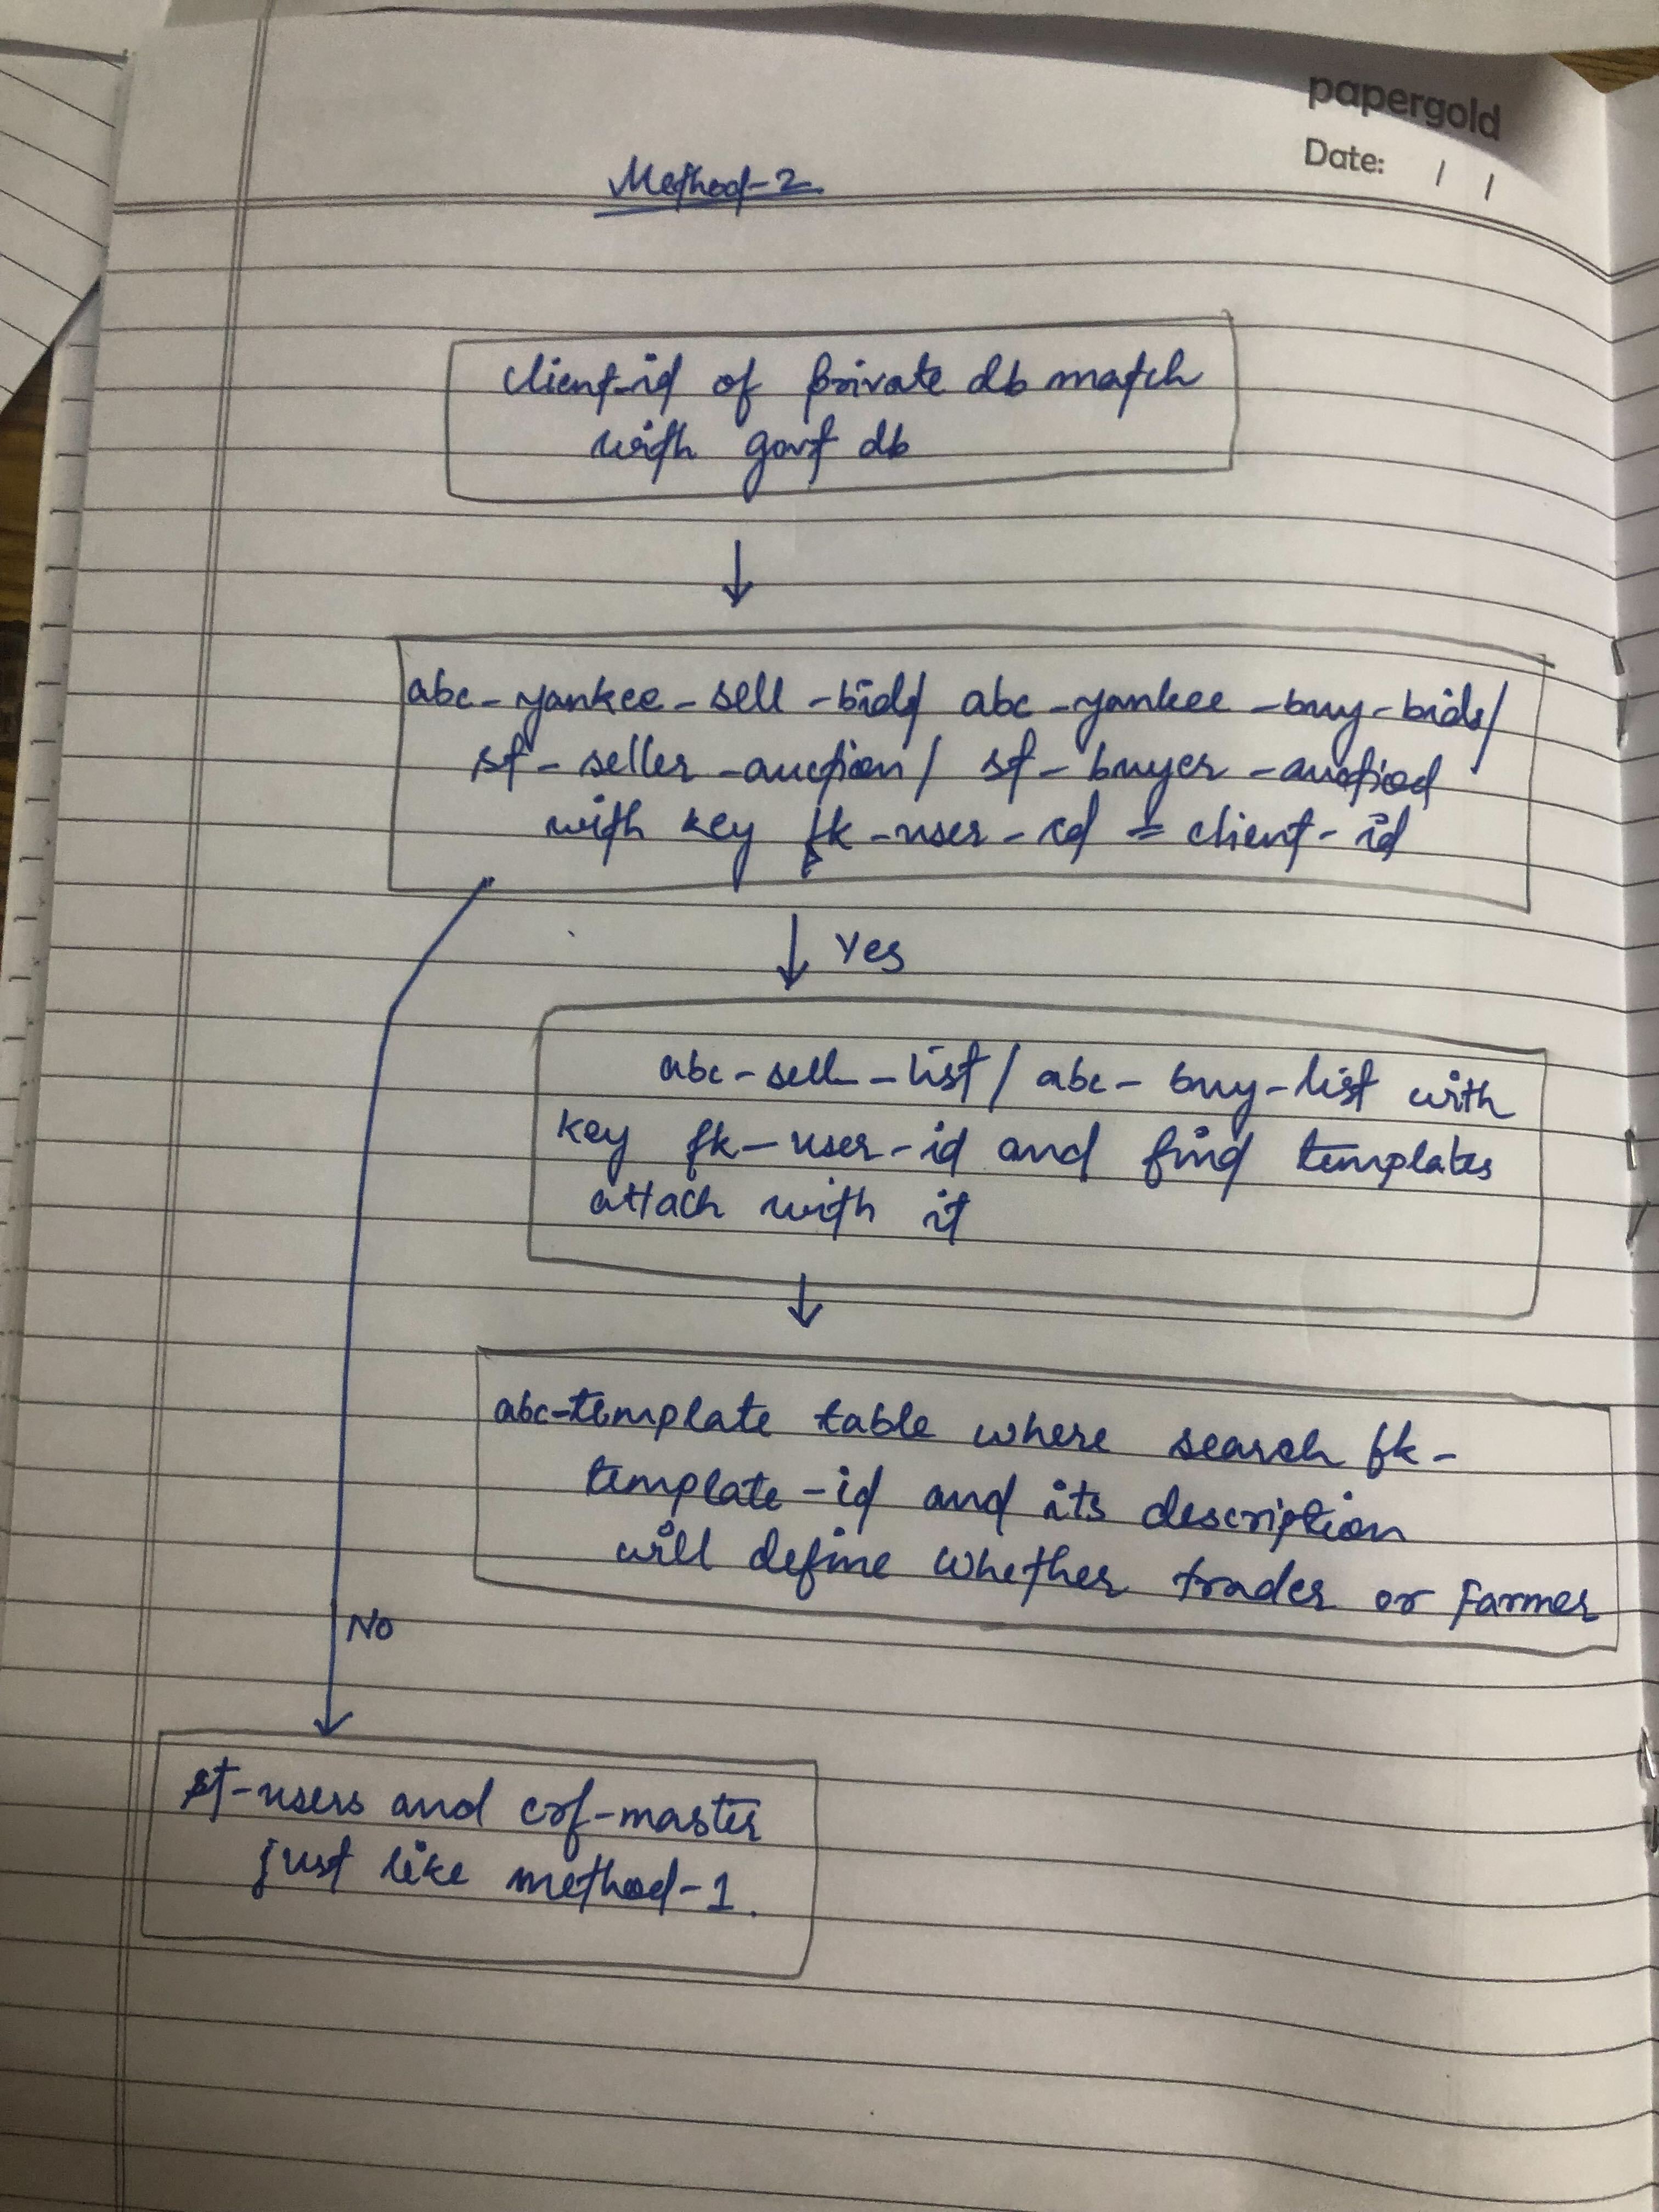 papergold
Date: / /
Method-2
client-id of private db match
with govt db
abc-yankee-sell-bids/ abc-yankee-buy-bids/
st-seller-auction/ st-buyer-auction
with key fk-user-id = client-id
Yes
abc-sell-list/abc-buy-list with
key fk-user-id and find templates
attach with it
abc-template table where search fk-
template-id and its description
will define whether trader or Farmer
No
st-users and crf-master
just like method-1.